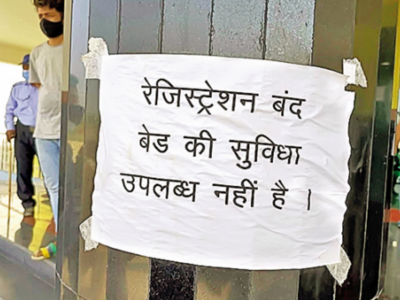 रेजिस्ट्रेशन बंद
बेड की सुविधा
उपलब्ध नहीं है ।